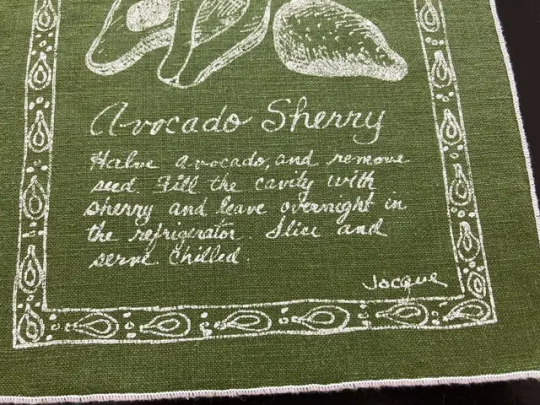 Avocado Sherry
Halve avocado, and remove
seed. Fill the cavity with
sherry and leave overnight in
the refrigerator. Slice and
serve chilled.
Jacque